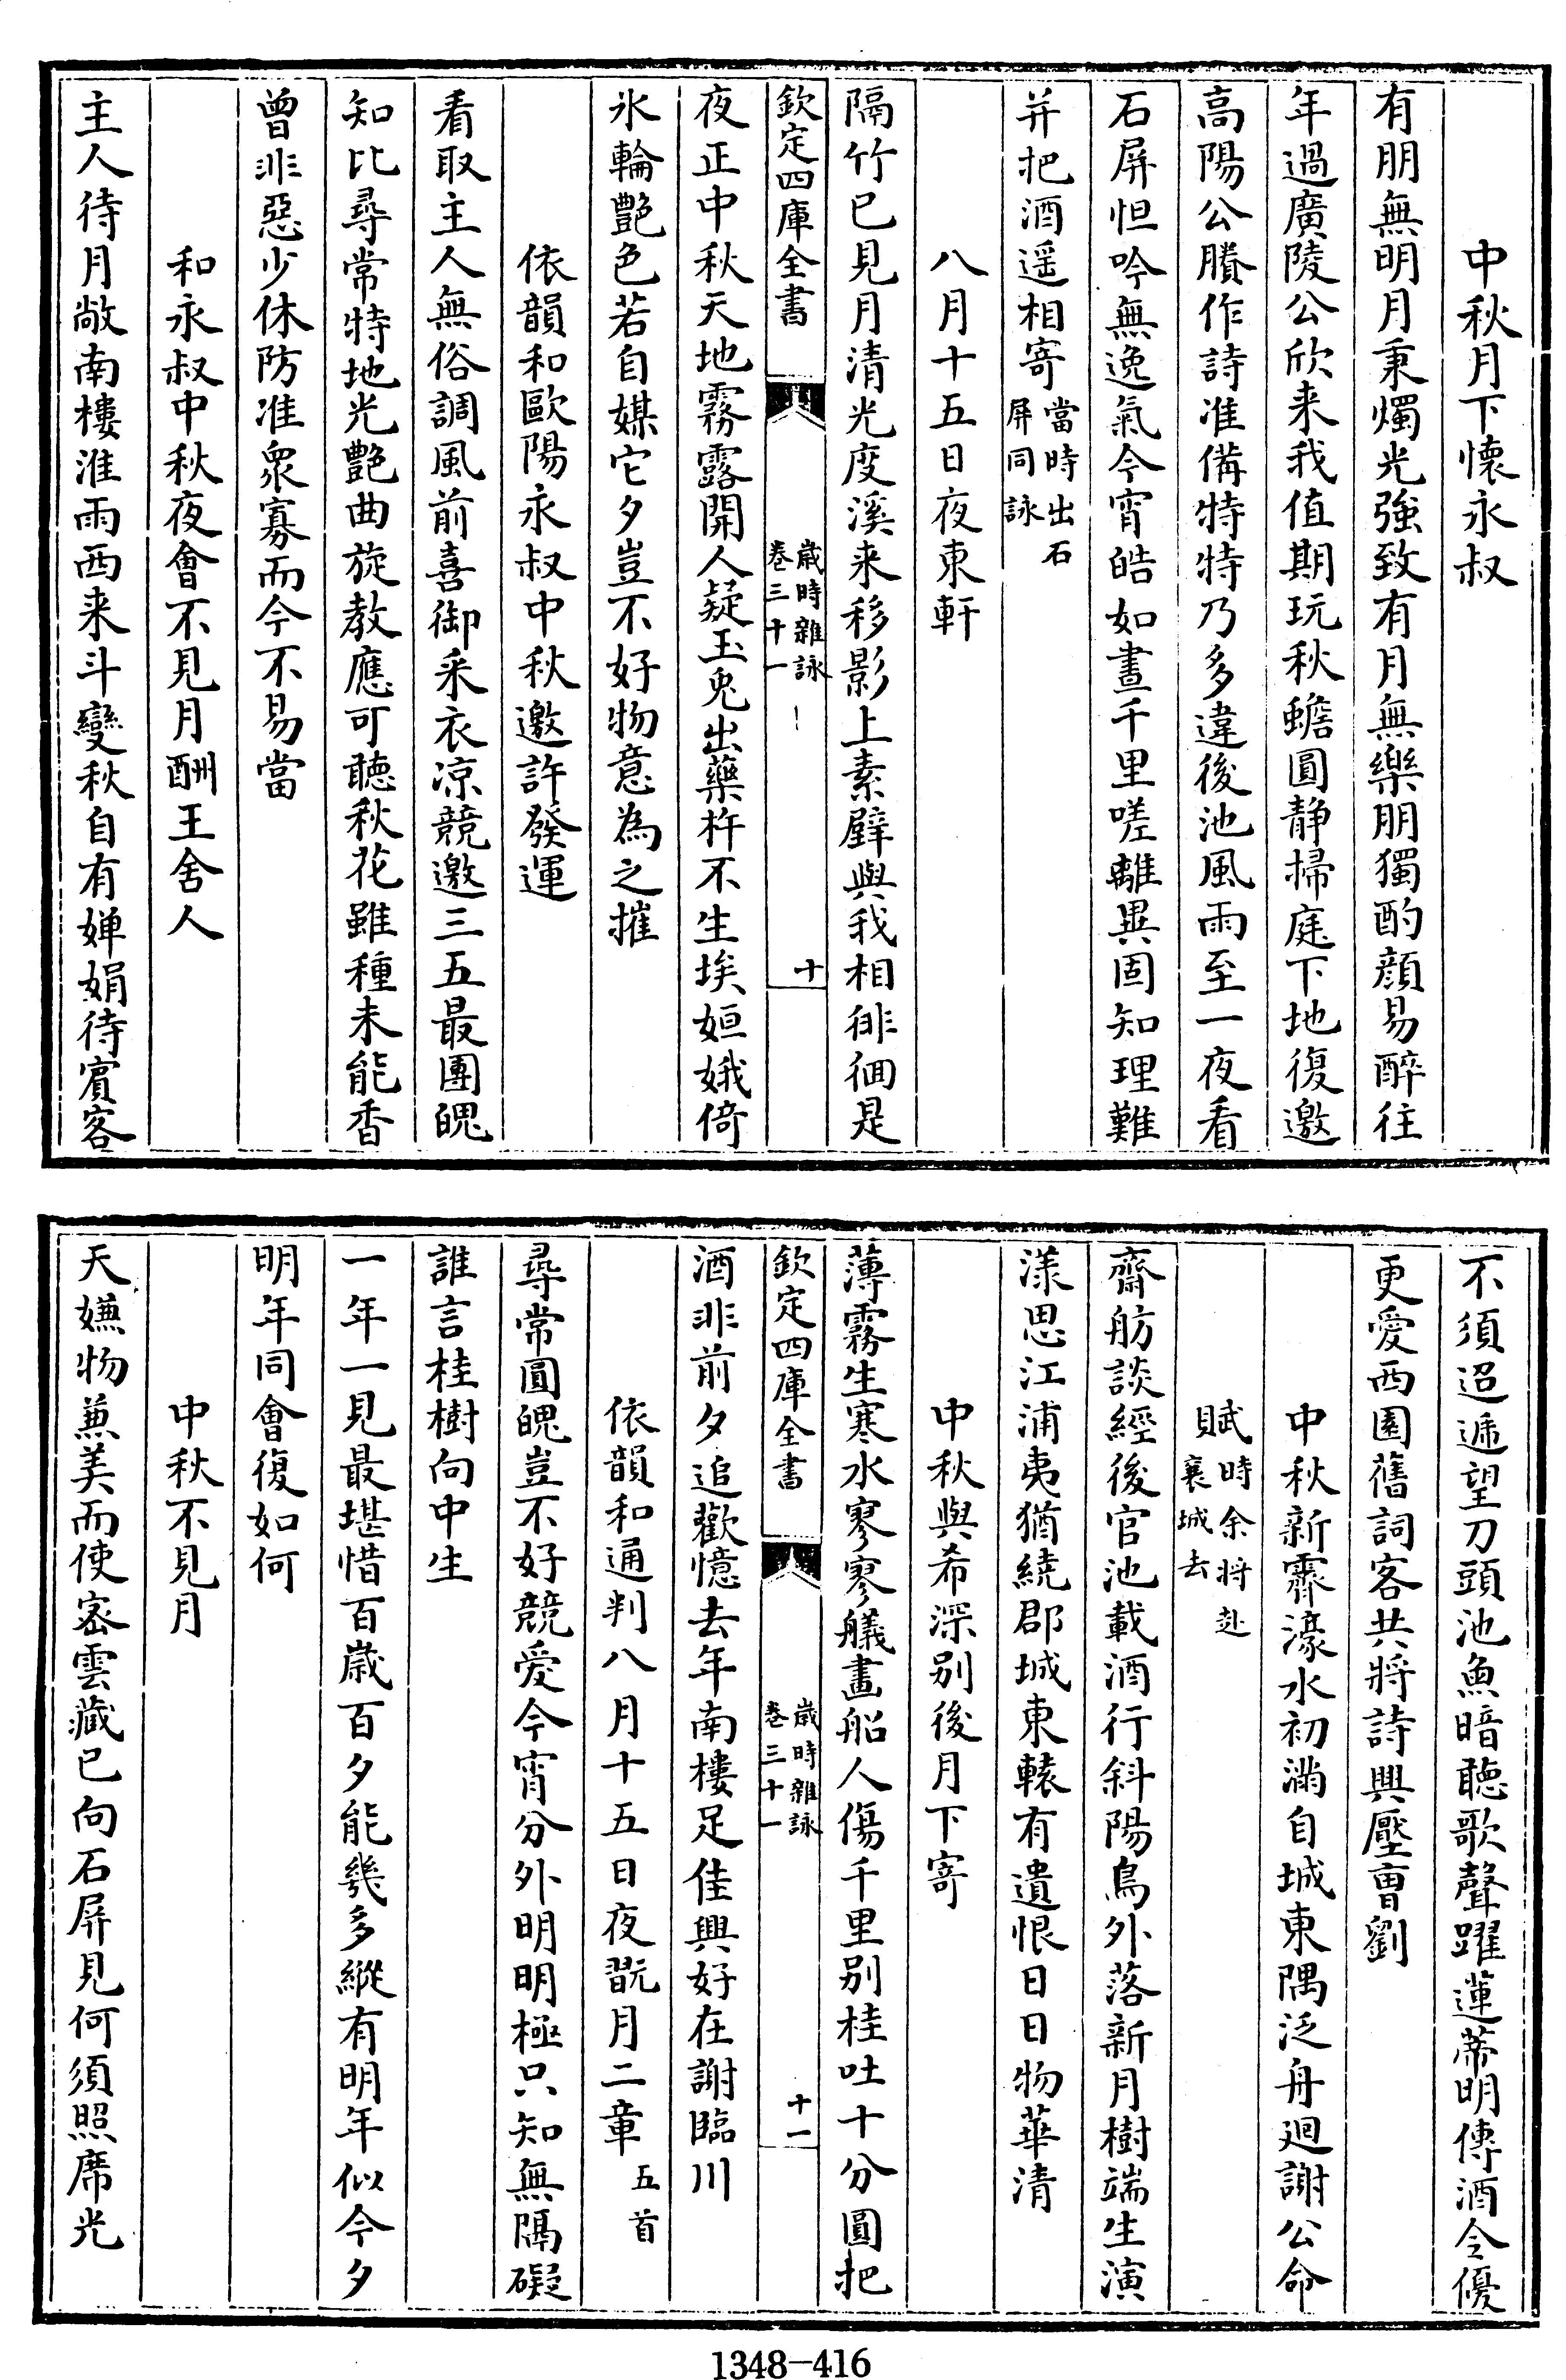 中秋月下懷永叔
有朋無明月秉燭光強致有月無樂朋獨酌顏易醉往
年過廣陵公欣来我值期玩秋蟾圓静掃庭下地復邀
高陽公賸作詩准備特特乃多違後池風雨至一夜看
石屏怛吟無逸氣今宵皓如晝千里嗟離異固知理難
并把酒遥相寄當時出石屏同詠
八月十五日夜東軒
隔竹已見月清光度溪来移影上素壁與我相徘徊是
欽定四庫全書 歲時雜詠 卷三十一 十
夜正中秋天地霧露開人疑玉兎出藥杵不生埃姮娥倚
氷輪艷色若自媒它夕豈不好物意為之摧
依韻和歐陽永叔中秋邀許發運
看取主人無俗調風前喜御夹衣凉競邀三五最團魄
知比尋常特地光艷曲旋教應可聽秋花雖種未能香
曾非惡少休防准衆寡而今不易當
和永叔中秋夜會不見月酬王舍人
主人待月敞南樓淮雨西来斗變秋自有嬋娟待賓客
不須迢遞望刀頭池魚暗聴歌聲躍蓮蒂明傳酒令優
更愛西園舊詞客共將詩興壓曹劉
中秋新霽濠水初滿自城東隅泛舟廻謝公命
賦時余將赴襄城去
齋舫談經後官池載酒行斜陽鳥外落新月樹端生演
漾思江浦夷猶繞郡城東轅有遺恨日日物華清
中秋與希深别後月下寄
薄霧生寒水寥寥艤畫船人傷千里别桂吐十分圓把
欽定四庫全書 歲時雜詠 卷三十一 十一
酒非前夕追歡憶去年南樓足佳興好在謝臨川
依韻和通判八月十五日夜翫月二章五首
尋常圓魄豈不好競愛今宵分外明明極只知無隔礙
誰言桂樹向中生
一年一見最堪惜百歲百夕能幾多縱有明年似今夕
明年同會復如何
中秋不見月
天嫌物兼美而使宻雲藏已向石屏見何須照席光
1348-416